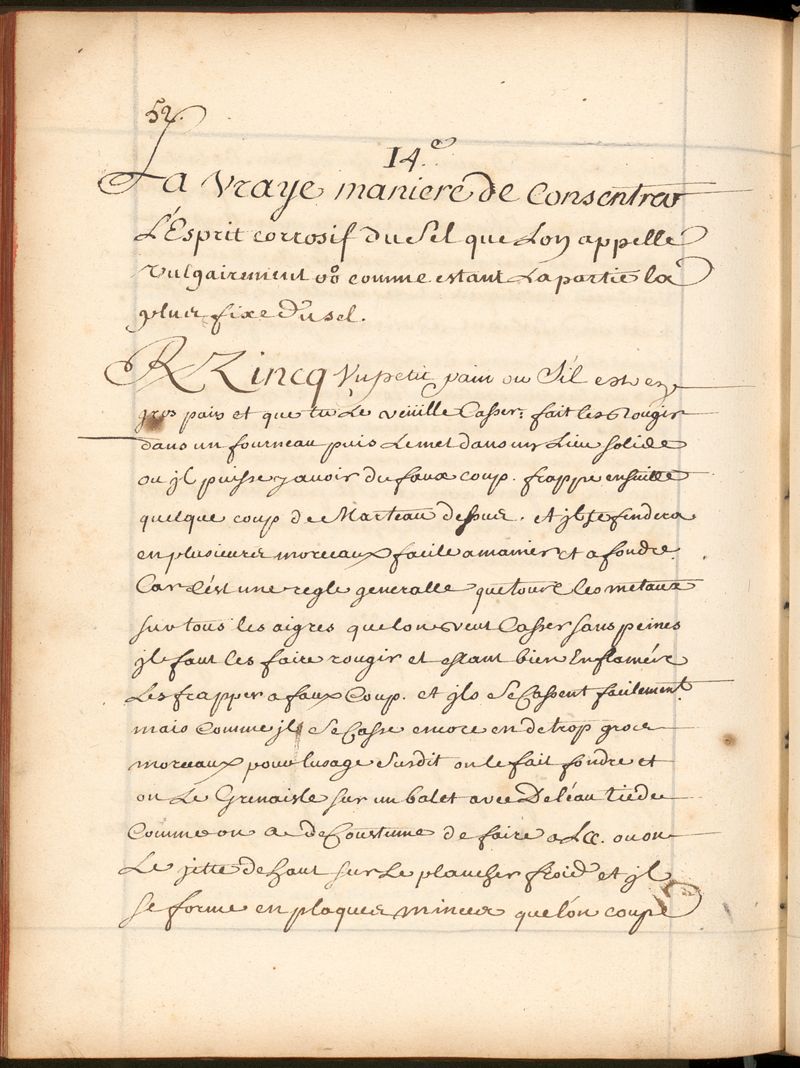 52.
14.e
La vraye maniere de Consentrer
L'Esprit corrosif du Sel que Lon appelle
vulgairement comme estant La partie la
plus fixe du sel.
R Zincq Un petit pain ou S'il est en
gros pais et que tu Le veüille Casser, fait les Rougir
dans un fourneau puis Le met dans un Lieu solide
ou jl puisse y avoir du faux coup. frappe ensuitte
quelque coup de Marteau dessus. et jl se findera
en plusieurs morceaux facile a manier et a fondre.
Car c'est une regle generalle que tous les metaux
sur tous les aigres que lon veut Casser sans peines
jl faut les faire rougir et estant bien Enflamés
Les frapper a faux Coup. et jls Se Cassent facilement
mais Comme jl Se Casse encore en de trop gros
morceaux pour lusage Surdit on le fait fondre et
on Le Grenaisle sur un balet avec De l'éau tiede
Comme on a de Coustume de faire a ou on
Le jitte de haut sur Le plancher froid et jl
se forme en plaques minces que l'on coupe